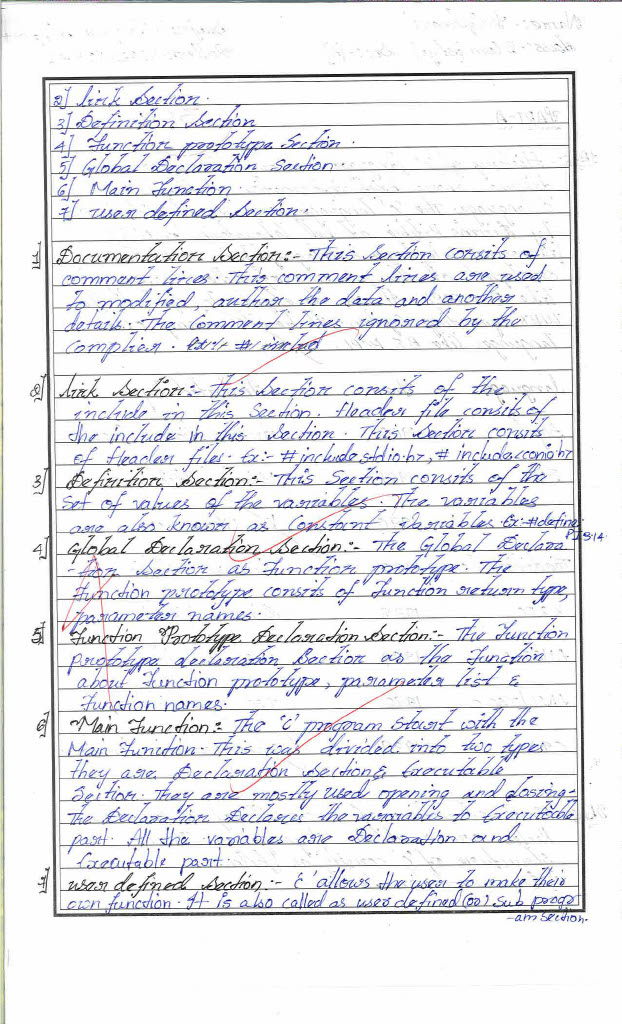 2] link Section.
3] Definition Section
4] Function prototype Section.
5] Global Declaration Section.
6] Main Function.
7] user defined Section.
1] Documentation Section:- This Section consits of
comment lines. This comment lines are used
to modified, author the data and another
details. The Comment lines ignored by the
Complier.
2] link Section:- This Section consits of the
include in this Section. Header file consits of
the include in this Section. This Section consits
of Header file. Ex:- #include stdio.h>, #include<conio.h>
3] Definition Section:- This Section consits of the
Set of values of the variables. The variables
are also known as Constant Variables Ex:-#define
PI 3.14
4] Global Declaration Section:- The Global Declara
-tion Section as Function prototype. The
Function prototype consits of Function return type,
parameter names.
5] Function Prototype Declaration Section:- The Function
Prototype declaration Section as the Function
about Function prototype, parameter list &
Function names.
6] Main Function:- The 'C' program Start with the
Main Function. This was divided into two types
they are Declaration Section & Executable
Section. They are mostly used opening and closing-
The Declaration Declares the variables to Executable
part. All the variables are Declaration and
Executable part.
7] user defined Section:- 'C' allows the user to make their
own function. It is also called as user defined (or) Sub progr
-am Section.